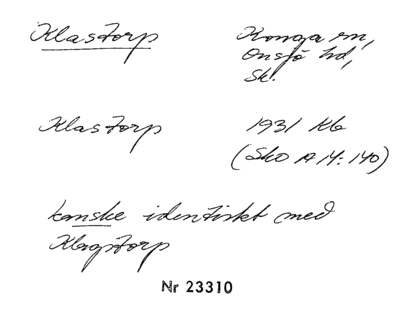 Klastorp
Konga sn,
Onsjö hd,
Sk.
Klastorp
1931 Kb
(SkO A 14:140)
kanske identiskt med
Klagstorp
Nr 23310